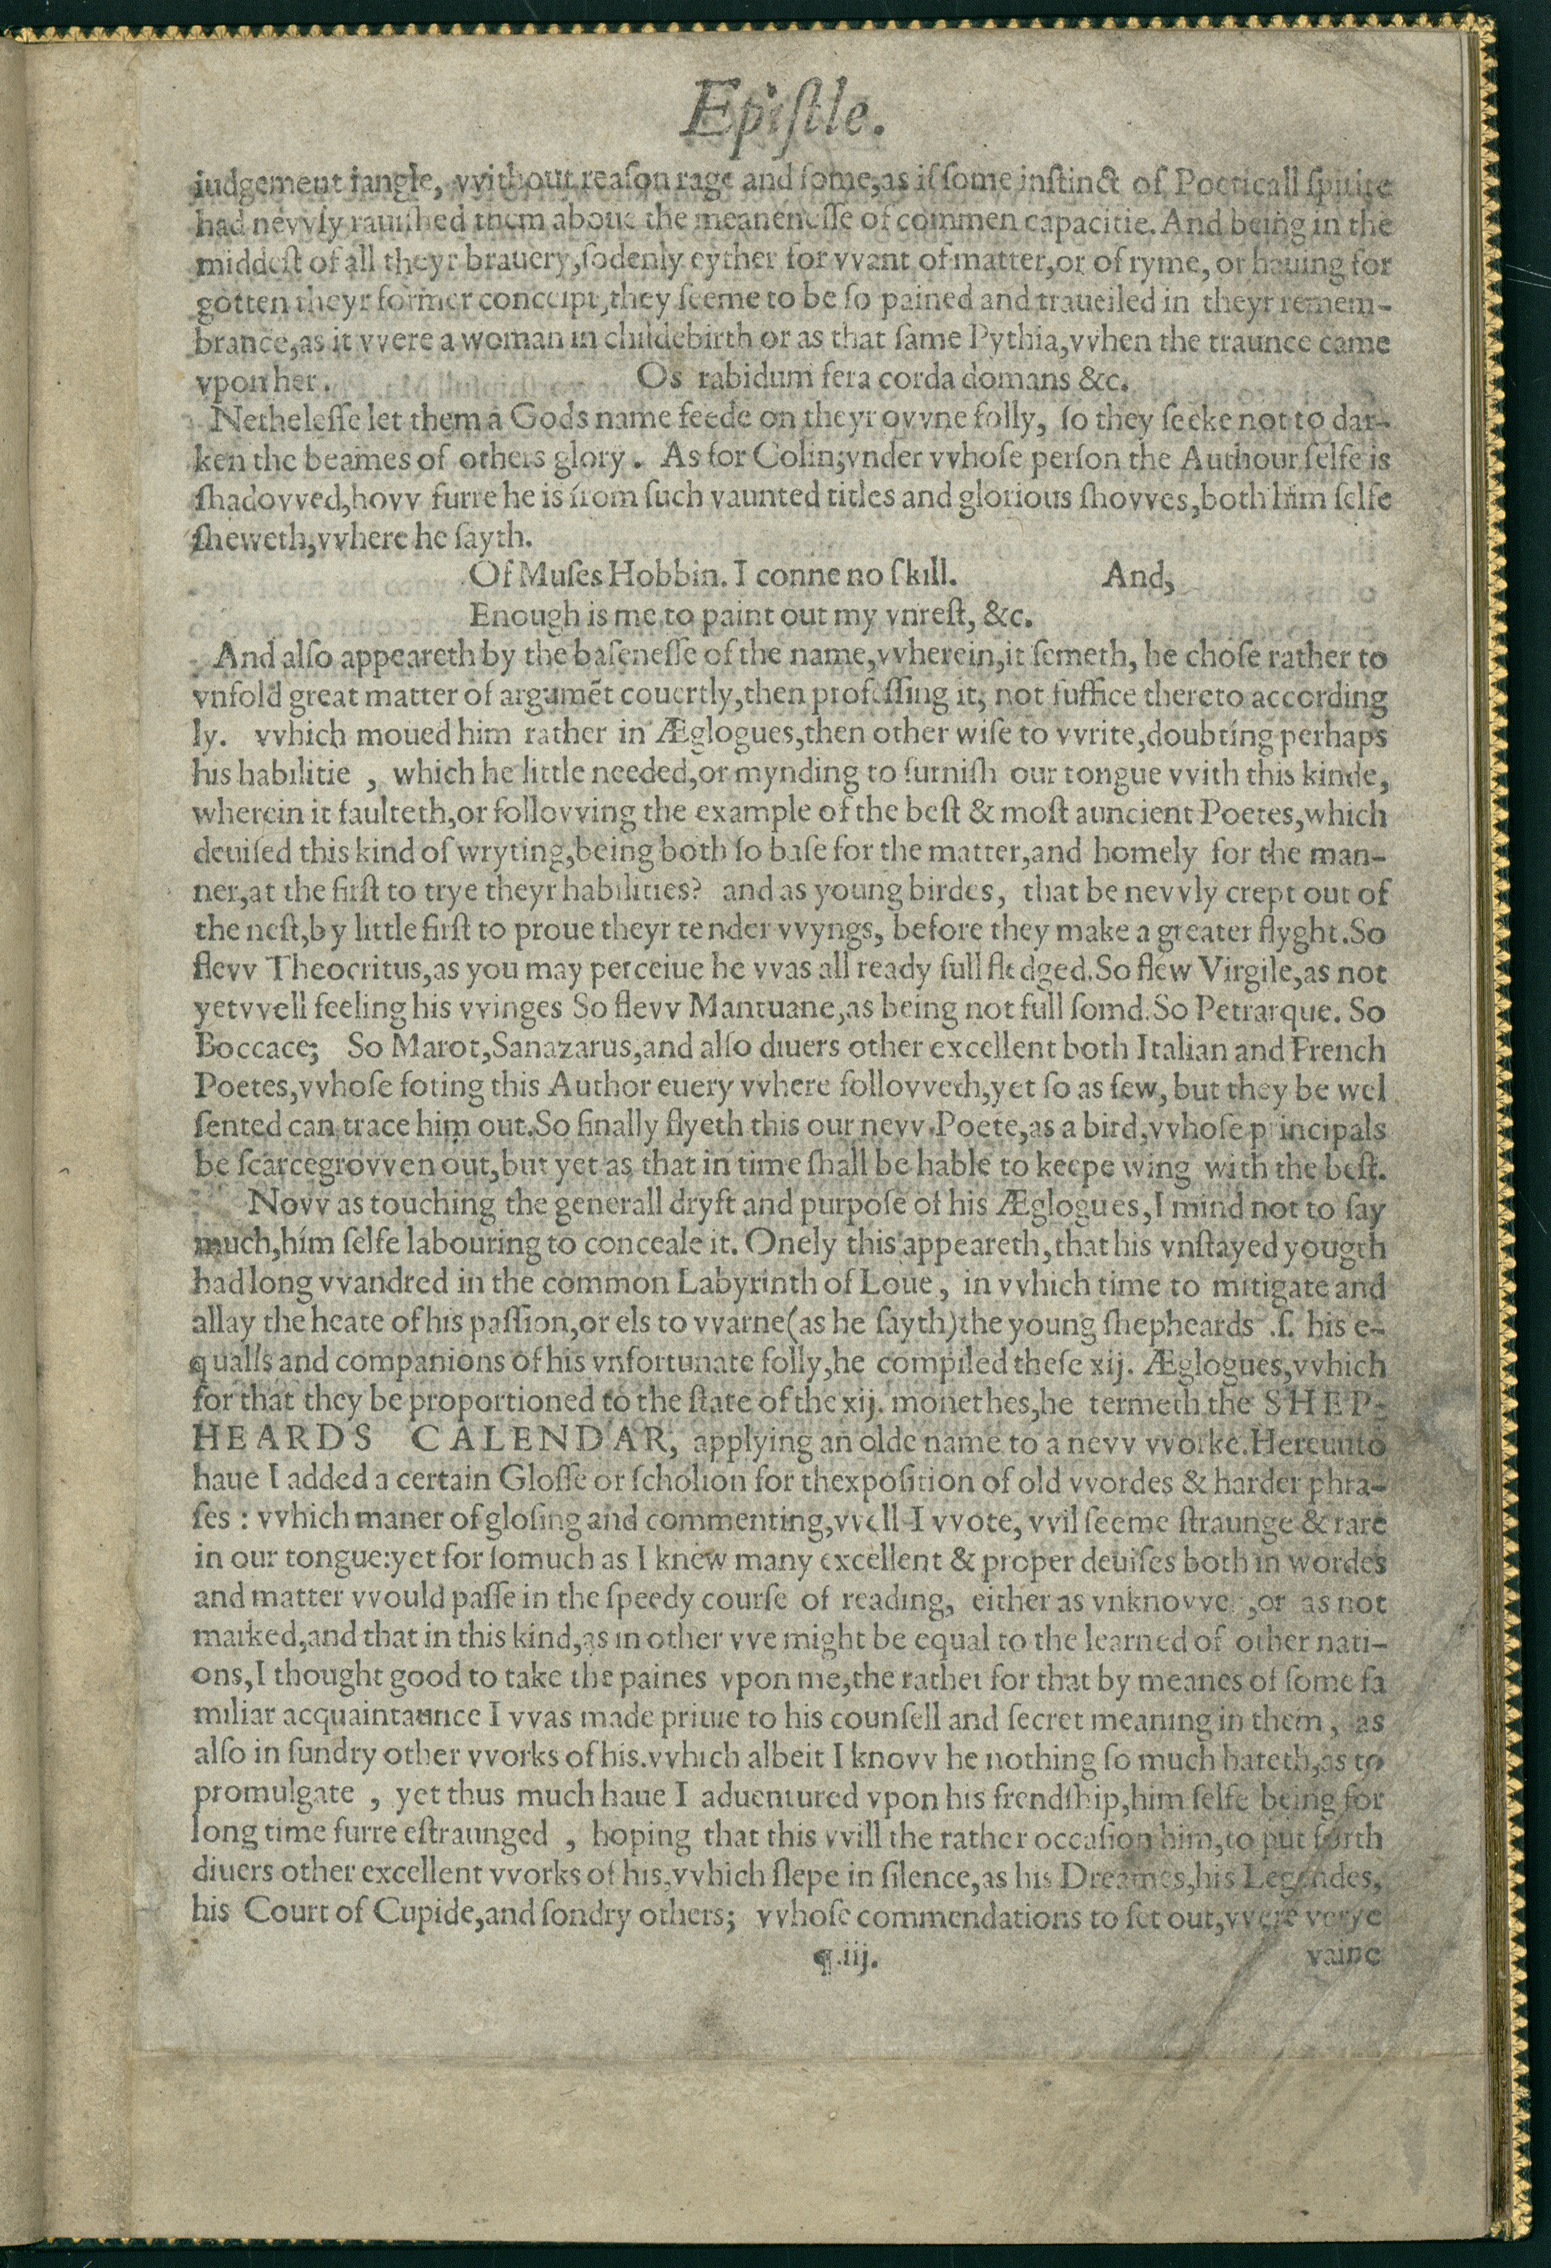 Epiſtle.
iudgement iangle, vvithout reaſon rage and fome, as if ſome inſtinct of Poeticall ſpirite
had nevvly rauiſhed them aboue the meaneneſſe of commen capacitie. And being in the
middeſt of all theyr brauery, ſodenly eyther for vvant of matter, or of ryme, or hauing for
gotten theyr former conceipt, they ſeeme to be ſo pained and traueiled in theyr remem-
brance, as it vvere a woman in childebirth or as that ſame Pythia, vvhen the traunce came
vpon her. Os rabidum fera corda domans &c.
Netheleſſe let them a Gods name feede on theyr ovvne folly, ſo they ſeeke not to dar-
ken the beames of others glory. As for Colin, vnder vvhoſe perſon the Authour ſelfe is
ſhadovved, hovv furre he is from ſuch vaunted titles and glorious ſhovves, both him ſelfe
ſheweth, vvhere he ſayth.
Of Muſes Hobbin. I conne no ſkill. And,
Enough is me to paint out my vnreſt, &c.
And alſo appeareth by the baſeneſſe of the name, vvherein, it ſemeth, he choſe rather to
vnfold great matter of argumẽt couertly, then profeſſing it, not ſuffice thereto according
ly. vvhich moued him rather in Æglogues, then other wiſe to vvrite, doubting perhaps
his habilitie , which he little needed, or mynding to furniſh our tongue vvith this kinde,
wherein it faulteth, or follovving the example of the beſt & moſt auncient Poetes, which
deuiſed this kind of wryting, being both ſo baſe for the matter, and homely for the man-
ner, at the firſt to trye theyr habilities? and as young birdes, that be nevvly crept out of
the neſt, by little firſt to proue theyr tender vvyngs, before they make a greater flyght. So
flevv Theocritus, as you may perceiue he vvas all ready full fledged. So flew Virgile, as not
yet vvell feeling his vvinges So flevv Mantuane, as being not full ſomd. So Petrarque. So
Boccace; So Marot, Sanazarus, and alſo diuers other excellent both Italian and French
Poetes, vvhoſe foting this Author euery vvhere follovveth, yet ſo as few, but they be wel
ſented can trace him out. So finally flyeth this our nevv Poete, as a bird, vvhoſe principals
be ſcarce grovven out, but yet as that in time ſhall be hable to keepe wing with the beſt.
Novv as touching the generall dryft and purpoſe of his Æglogues, I mind not to ſay
much, him ſelfe labouring to conceale it. Onely this appeareth, that his vnſtayed yougth
had long vvandred in the common Labyrinth of Loue, in vvhich time to mitigate and
allay the heate of his paſſion, or els to vvarne (as he ſayth) the young ſhepheards .ſ. his e-
qualls and companions of his vnfortunate folly, he compiled theſe xij. Æglogues, vvhich
for that they be proportioned to the ſtate of the xij. monethes, he termeth the SHEP-
HEARDS CALENDAR, applying an olde name to a nevv vvorke. Hereunto
haue I added a certain Gloſſe or ſcholion for thexpoſition of old vvordes & harder phra-
ſes : vvhich maner of gloſing and commenting, vvell I vvote, vvil ſeeme ſtraunge & rare
in our tongue: yet for ſomuch as I knew many excellent & proper deuiſes both in wordes
and matter vvould paſſe in the ſpeedy courſe of reading, either as vnknovven, or as not
marked, and that in this kind, as in other vve might be equal to the learned of other nati-
ons, I thought good to take the paines vpon me, the rather for that by meanes of ſome fa
miliar acquaintaunce I vvas made priuie to his counſell and ſecret meaning in them, as
alſo in ſundry other vvorks of his. vvhich albeit I knovv he nothing ſo much hateth, as to
promulgate , yet thus much haue I aduentured vpon his frendſhip, him ſelfe being for
long time furre eſtraunged , hoping that this vvill the rather occaſion him, to put forth
diuers other excellent vvorks of his, vvhich ſlepe in ſilence, as his Dreames, his Legendes,
his Court of Cupide, and ſondry others; vvhoſe commendations to ſet out, vvere verye
¶.iij. vaine